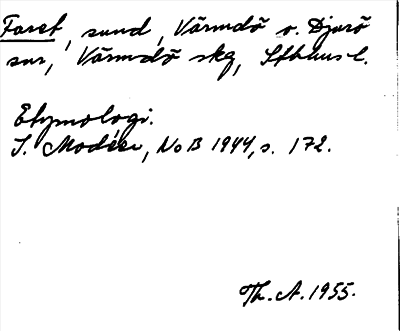 Faret, sund, Värmdö o. Djurö
snr, Värmdö skg, Sthlms l.
Etymologi.
I. Modéer, NoB 1944, s. 172.
Th. A. 1955.